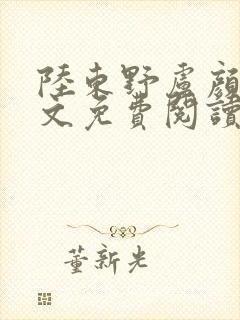 陸東野盧顏
文免費閱讀
董新光